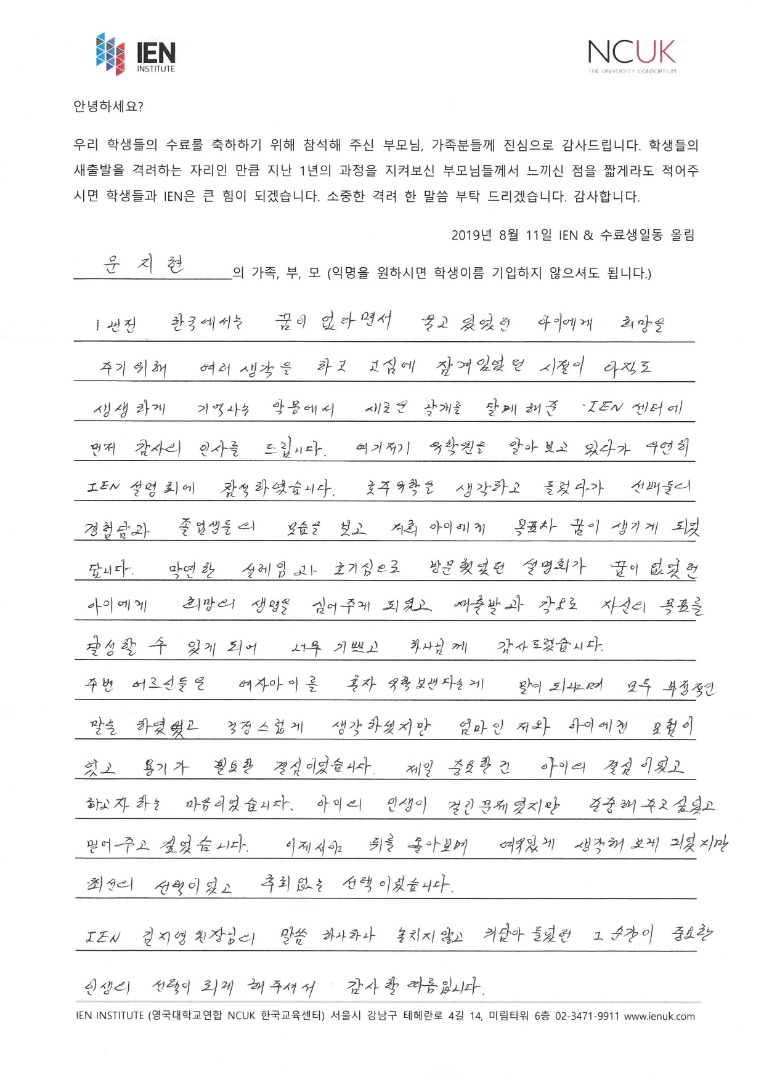 IEN
INSTITUTE
NCUK
THE UNIVERSITY CONSORTIUM
안녕하세요?
우리 학생들의 수료를 축하하기 위해 참석해 주신 부모님, 가족분들께 진심으로 감사드립니다. 학생들의
새출발을 격려하는 자리인 만큼 지난 1년의 과정을 지켜보신 부모님들께서 느끼신 점을 짧게라도 적어주
시면 학생들과 IEN은 큰 힘이 되겠습니다. 소중한 격려 한 말씀 부탁 드리겠습니다. 감사합니다.
2019년 8월 11일 IEN & 수료생일동 올림
문지현 의 가족, 부, 모 (익명을 원하시면 학생이름 기입하지 않으셔도 됩니다.)
1년전 한국에서는 꿈이 없다면서 울고 있었던 아이에게 희망을
주기위해 여러 생각을 하고 고심에 잠겨있었던 시절이 아직도
생생하게 기억나는 악몽에서 새로운 날개를 달게 해준 IEN 센터에
먼저 감사의 인사를 드립니다. 여기저기 유학원을 알아보고 있다가 우연히
IEN 설명회에 참석하였습니다. 호주유학을 생각하고 들렀다가 선배들의
경험담과 졸업생들의 모습을 보고 저희 아이에게 목표와 꿈이 생기게 되었
답니다. 막연한 설레임과 호기심으로 방문했었던 설명회가 꿈이 없었던
아이에게 희망의 생명을 심어주게 되었고 새출발과 각오로 자신의 목표를
달성할 수 있게 되어 너무 기쁘고 하나님께 감사드렸습니다.
주변 어르신들은 여자아이를 혼자 유학보낸다는게 말이 되냐며 모두 부정적인
말을 하였었고 걱정스럽게 생각하셨지만 엄마인 저와 아이에겐 모험이
었고 용기가 필요한 결심이었습니다. 제일 중요한건 아이의 결심이었고
하고자 하는 마음이었습니다. 아이의 인생이 걸린문제였지만 존중해주고싶었고
믿어주고 싶었습니다. 이제서야 뒤를 돌아보며 여유있게 생각해 보게 되었지만
최선의 선택이었고 후회없는 선택이었습니다.
IEN 김지영 원장님의 말씀 하나하나 놓치지않고 귀담아 들었던 그 순간이 중요한
인생의 선택이 되게 해주셔서 감사할 따름입니다.
IEN INSTITUTE (영국대학교연합 NCUK 한국교육센터) 서울시 강남구 테헤란로 4길 14, 미림타워 6층 02-3471-9911 www.ienuk.com